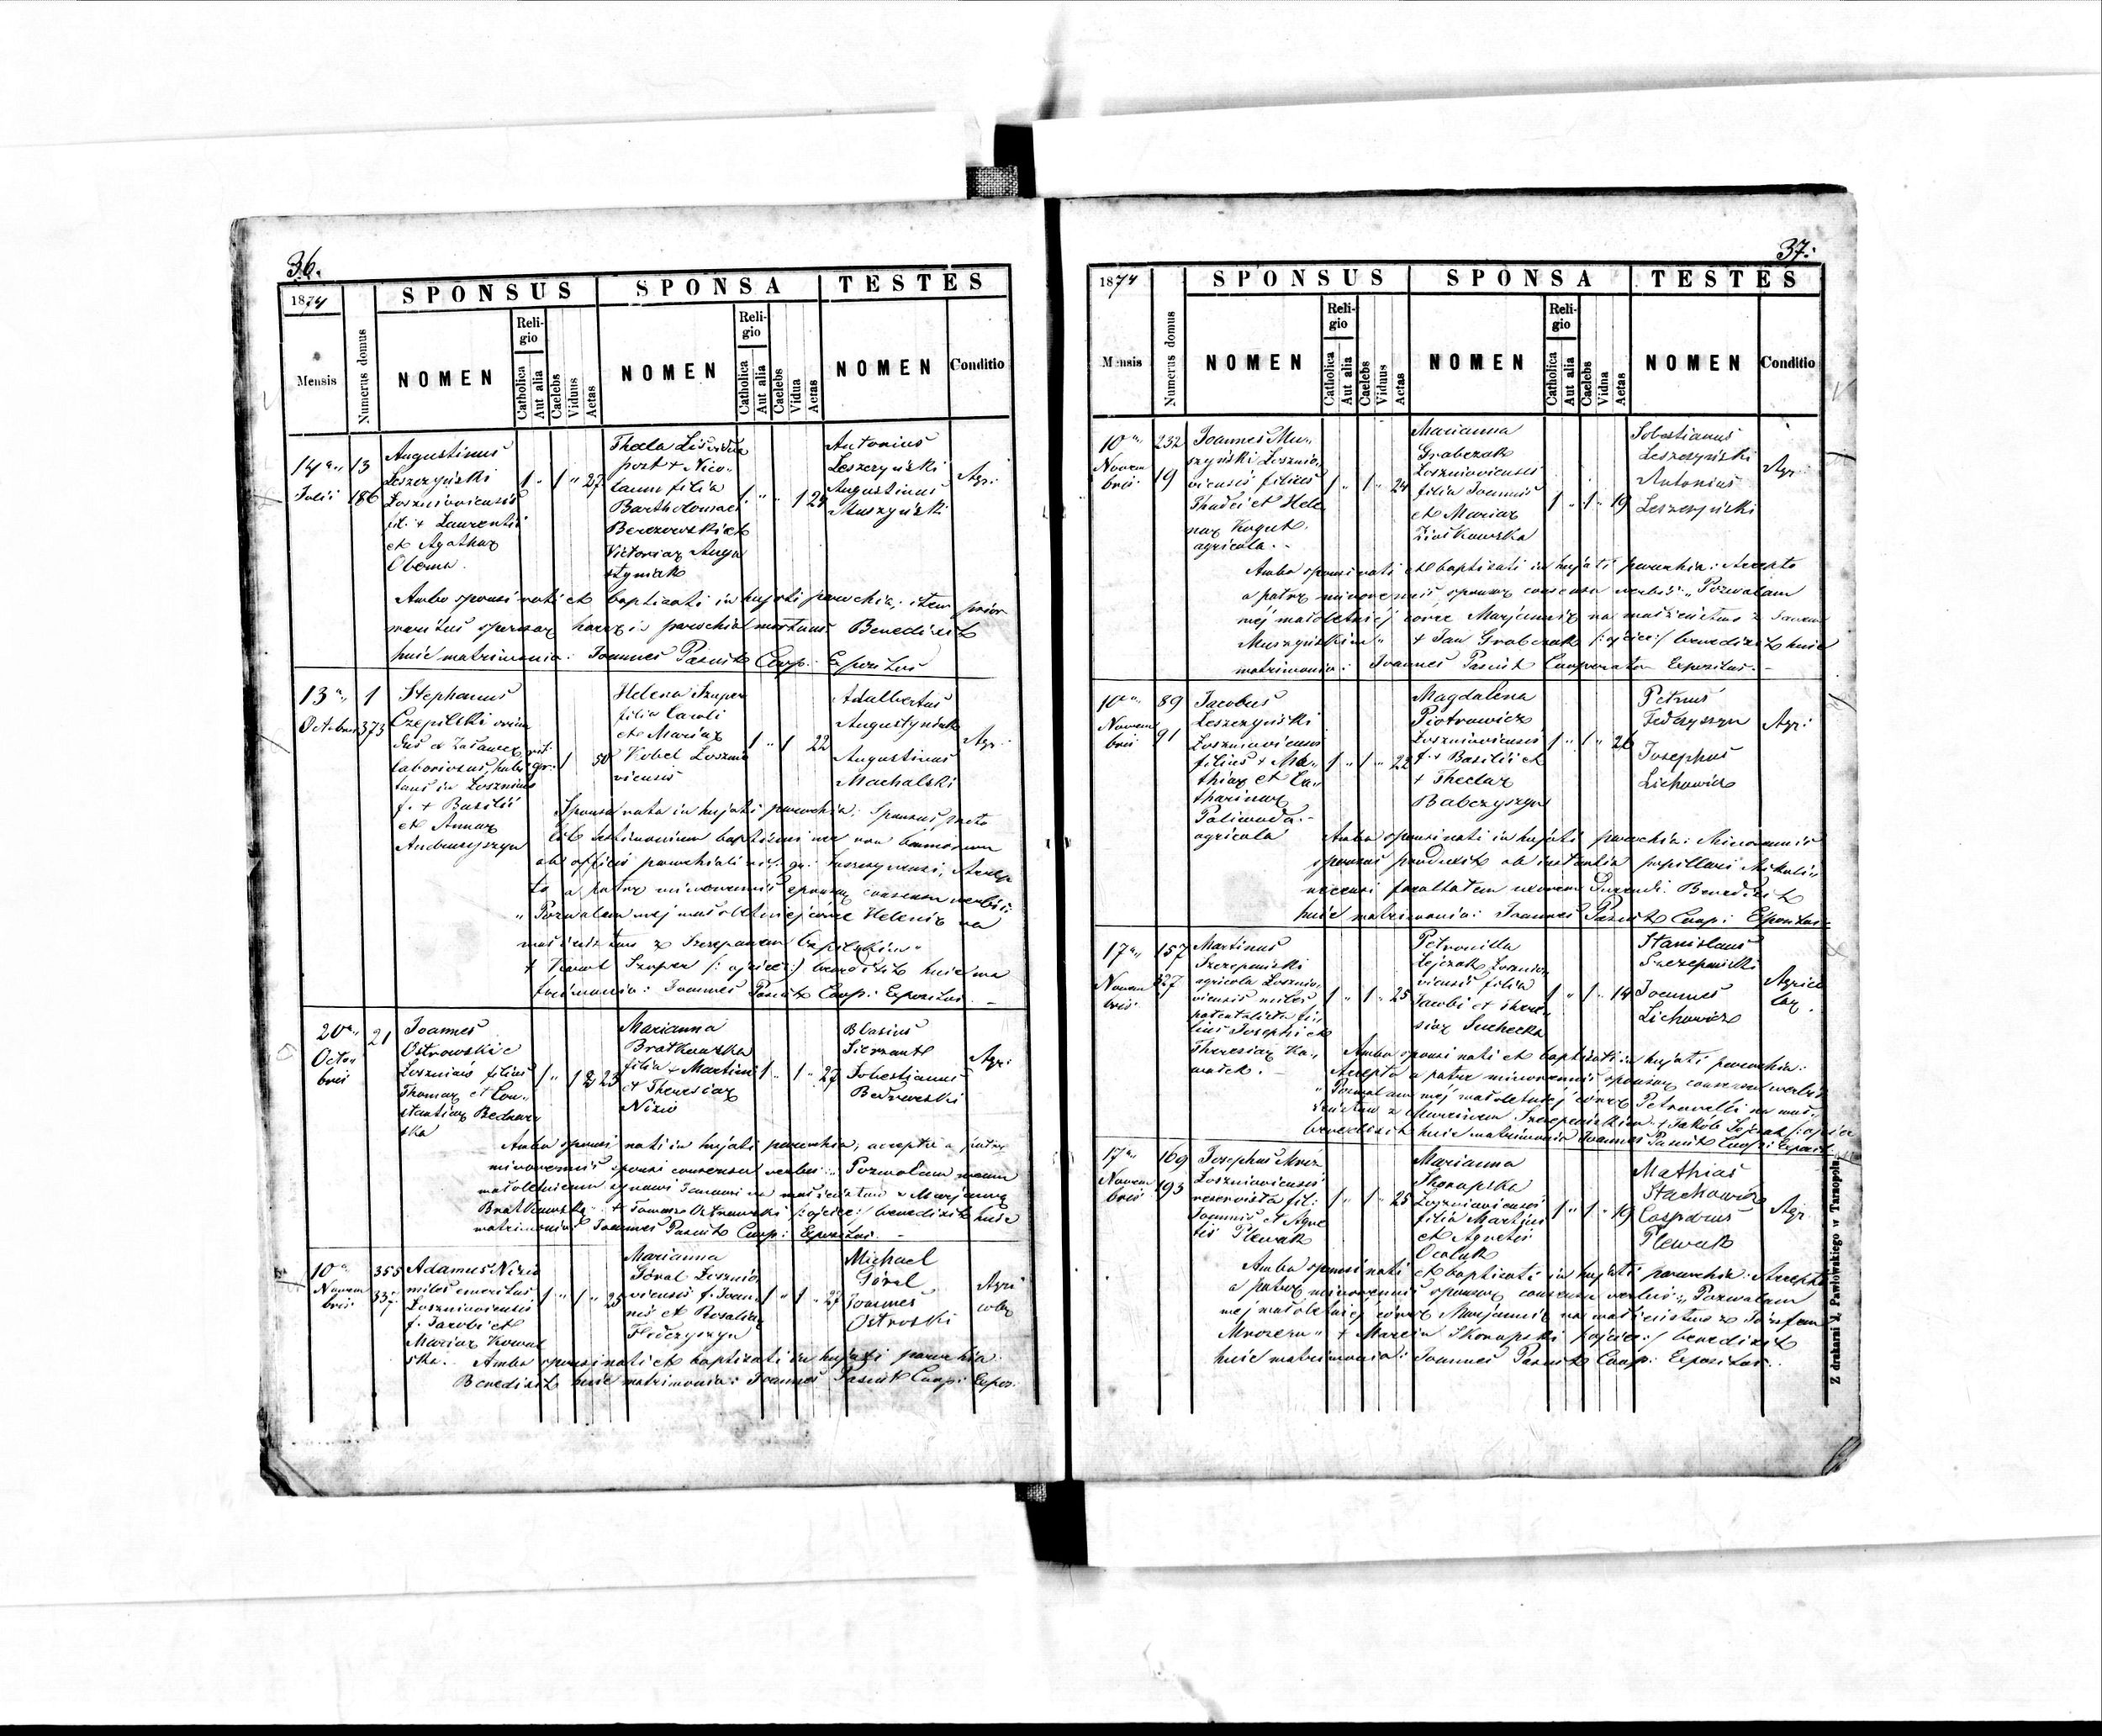 36.
1874
SPONSUS
SPONSA
TESTES
Mensis
Numerus domus
NOMEN
Religio
Catholica
Aut alia
Caelebs
Viduus
Aetas
NOMEN
Religio
Catholica
Aut alia
Caelebs
Vidua
Aetas
NOMEN
Conditio
14a
Julii
13
186
Augustinus
Leszczyński
Łosznioviensis
fil: + Laurentii
et Agathae
Oberna.
1 " 1 " 27
post + Nico-
laum filia
Bartholomaei
Berezowski et
Victoriae Augu
styniak
1 " " 1 24
Antonius
Leszczyński
Augustinus
Muszyński
Agri:
Ambo sponsi nati et baptizati in hujati parochia; item prior
maritus sponsae hacce in parochia mortuus. Benedixit
huic matrimonio: Joannes Pasiut Coop: Expositus
13a
Octobris
1
373
Stephanus
Czepilski oriun
dus e
laboriosus, habi
tans in Łoszniow
f. + Basilii
et Annae
Andrunyszyn
rit:
gr:
1 50
Helena Szuper
filia Caroli
et Mariae
Kobel Łosznio
viensis
1 " 1 22
Adalbertus
Augustyniak
Augustinus
Machalski
Agr:
Sponsa nata in hujati parochia; Sponsus
testimonium baptismi
ab officio parochiali rit: gr: Accep
to a patre minorennis sponsae consensu verbis:
"Pozwalam mej małoletniej córce Helenie na
małżeństwo z Szczepanem Czepilskim"
+ Karol Szuper (: ojciec :) benedixit huic ma
trimonio: Joannes Pasiut Coop: Expositus. —
20a
Octo
bris
21
Joannes
Ostrowski e
Łoszniów filius
Thomae et Con-
stantiae Bednar
ska
1 " 1 " 23
Marianna
Bratkowska
filia + Martini
et Theresiae
Nizio
1 " 1 " 27
Blasius
Sierzant
Sobestianus
Bedrowski
Agr:
Ambo sponsi nati in hujati parochia; accepto a patre
minorennis sponsi consensu verbis: "Pozwalam memu
małoletniemu synowi Janowi na małżeństwo z Marjanną
Bratkowską" + Tomasz Ostrowski (: ojciec :) benedixit huic
matrimonio Joannes Pasiut Coop: Expositus. —
10a
Novem
bris
355
337.
Adamus Nizio
miles emeritus
Łoszniowiensis
f. Jacobi et
Mariae Kowal
ska.
1 " 1 " 25
Marianna
Góral Łosznio
viensis f. Joan
nis et Rosaliae
Fedczyszyn
1 " 1 " 27
Michael
Góral
Joannes
Ostroski
Agri
colae
Ambo sponsi nati et baptizati in hujati parochia.
Benedixit huic matrimonio: Joannes Pasiut Coop: Expos:
37.
1874
SPONSUS
SPONSA
TESTES
Mensis
Numerus domus
NOMEN
Religio
Catholica
Aut alia
Caelebs
Viduus
Aetas
NOMEN
Religio
Catholica
Aut alia
Caelebs
Vidua
Aetas
NOMEN
Conditio
10a
Novem
bris
232
19
Joannes Mu-
szyński Łosznio-
viensis filius
Thadei et Hele
nae Kogut.
agricola. -
1 " 1 " 24
Marianna
Grabczak
Łoszniowiensis
filia Joannis
et Mariae
Ziółkowska
1 " 1 " 19
Sobestianus
Leszczyński
Antonius
Leszczyński
Agr:
Ambo sponsi nati et baptizati in hujati parochia: Accepto
a patre minorennis sponsae consensu verbis: "Pozwalam
mej małoletniej córce Marjannie na małżeństwo z Janem
Muszyńskim" + Jan Grabczak (: ojciec :) benedixit huic
matrimonio: Joannes Pasiut Cooperator Expositus. —
10a
Novem
bris
89
91
Jacobus
Leszczyński
Łoszniowiensis
filius + Ma-
thiae et Ca-
tharinae
Paliwoda. -
agricola
1 " 1 " 22
Magdalena
Piotrowicz
Łoszniowiensis
f. + Basilii et
+ Theclae
Babczyszyn
1 " 1 " 26
Petrus
Fedczyszyn
Josephus
Lichowicz
Agr:
Ambo sponsi nati in hujati parochia: Minorennis
sponsus produxit ab instantia pupillari Mikuli-
nicensi facultatem uxorem ducendi. Benedixit
huic matrimonio: Joannes Pasiut Coop: Expositus. -
17a
Novem
bris
157
327
Martinus
Szczepański
agricola Łosznio
viensis miles
patentalista fi-
lius Josephi et
Theresiae Ka-
1 " 1 " 25
Petronilla
Łejczak Łosznio
viensis filia
Jacobi et There-
siae Suchecka
1 " 1 " 14
Stanislaus
Szczepański
Joannes
Lichowicz
Agrico
lae.
Ambo sponsi nati et baptizati in hujati parochia:
Accepto a patre minorennis sponsae consensu verbis:
"Pozwalam mej małoletniej córce Petronelli na mał-
żeństwo z Marcinem Szczepańskim" + Jakób Łejczak (: ojciec
benedixit huic matrimonio Joannes Pasiut Coop: Exposit
17a
Novem
bris
169
193
Josephus Mróz
Łoszniowiensis
reservista fil:
Joannis et Agne
tis Plewak
1 " 1 " 25
Marianna
Skorupska
Łoszniowiensis
filia Martini
et Agnetis
1 " 1 " 19
Mathias
Stachowicz
Casparus
Plewak
Agr.
Ambo sponsi nati et baptizati in hujati parochia: Accepto
a patre minorennis sponsae consensu verbis: "Pozwalam
mej małoletniej córce Marjannie na małżeństwo z Józefem
Mrozem" + Marcin Skorupski (: ojciec :) benedixit
huic matrimonio: Joannes Pasiut Coop: Expositus. -
Z drukarni J. Pawłowskiego w Tarnopolu